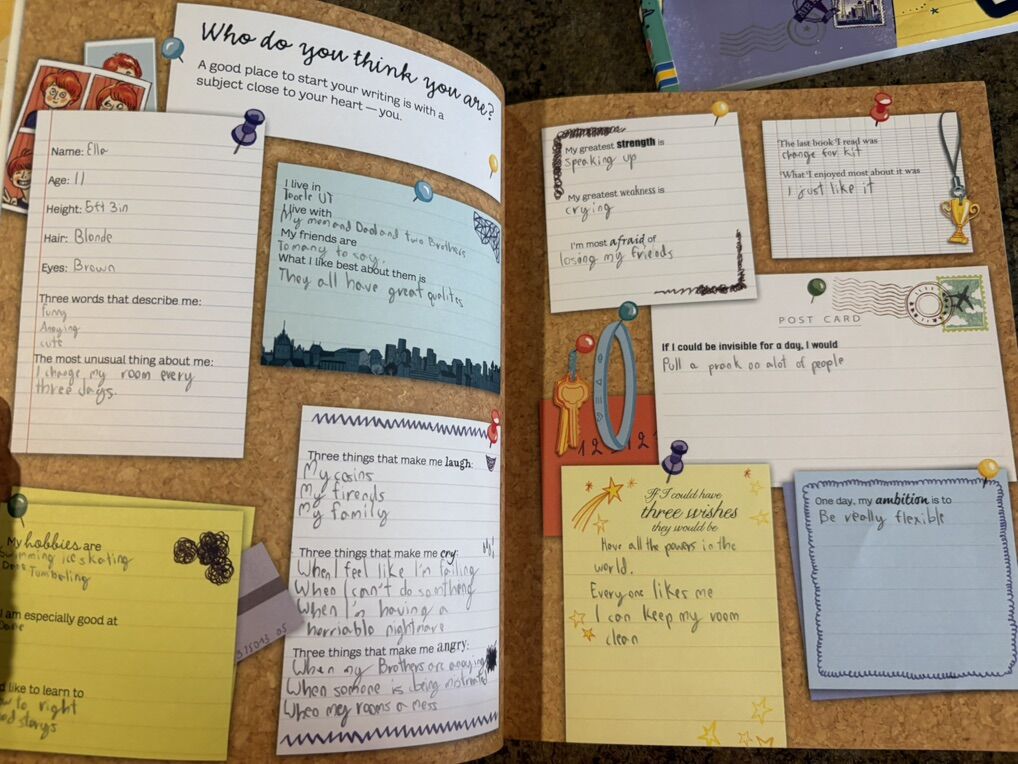 Who do you think you are?
A good place to start your writing is with a
subject close to your heart — you.
Name: Ella
Age: 11
Height: 5ft 3in
Hair: Blonde
Eyes: Brown
Three words that describe me:
Funny
Anoying
cute
The most unusual thing about me:
I change my room every
three days.
I live in
Toole UT
I live with
My mom and Dad and two Brothers
My friends are
To many to say.
What I like best about them is
They all have great qualites
My hobbies are
Swimming ice skating
Tumbeling
I am especially good at
like to learn to
to right
storys
15013 05
Three things that make me laugh:
My cosins
My firends
My family
Three things that make me cry:
When I feel like I'm failing
When I can't do somtheng
When I'm having a
horriable nightmare
Three things that make me angry:
When my Brothers are anoying
When somone is being mistreated
When my rooms a mess
My greatest strength is
speaking up
My greatest weakness is
crying
I'm most afraid of
losing my friends
The last book I read was
change for kit
What I enjoyed most about it was
I just like it
POST CARD
If I could be invisible for a day, I would
Pull a prank on alot of people
If I could have
three wishes
they would be
Have all the powers in the
world.
Every one likes me
I can keep my room
clean
One day, my ambition is to
Be really flexible